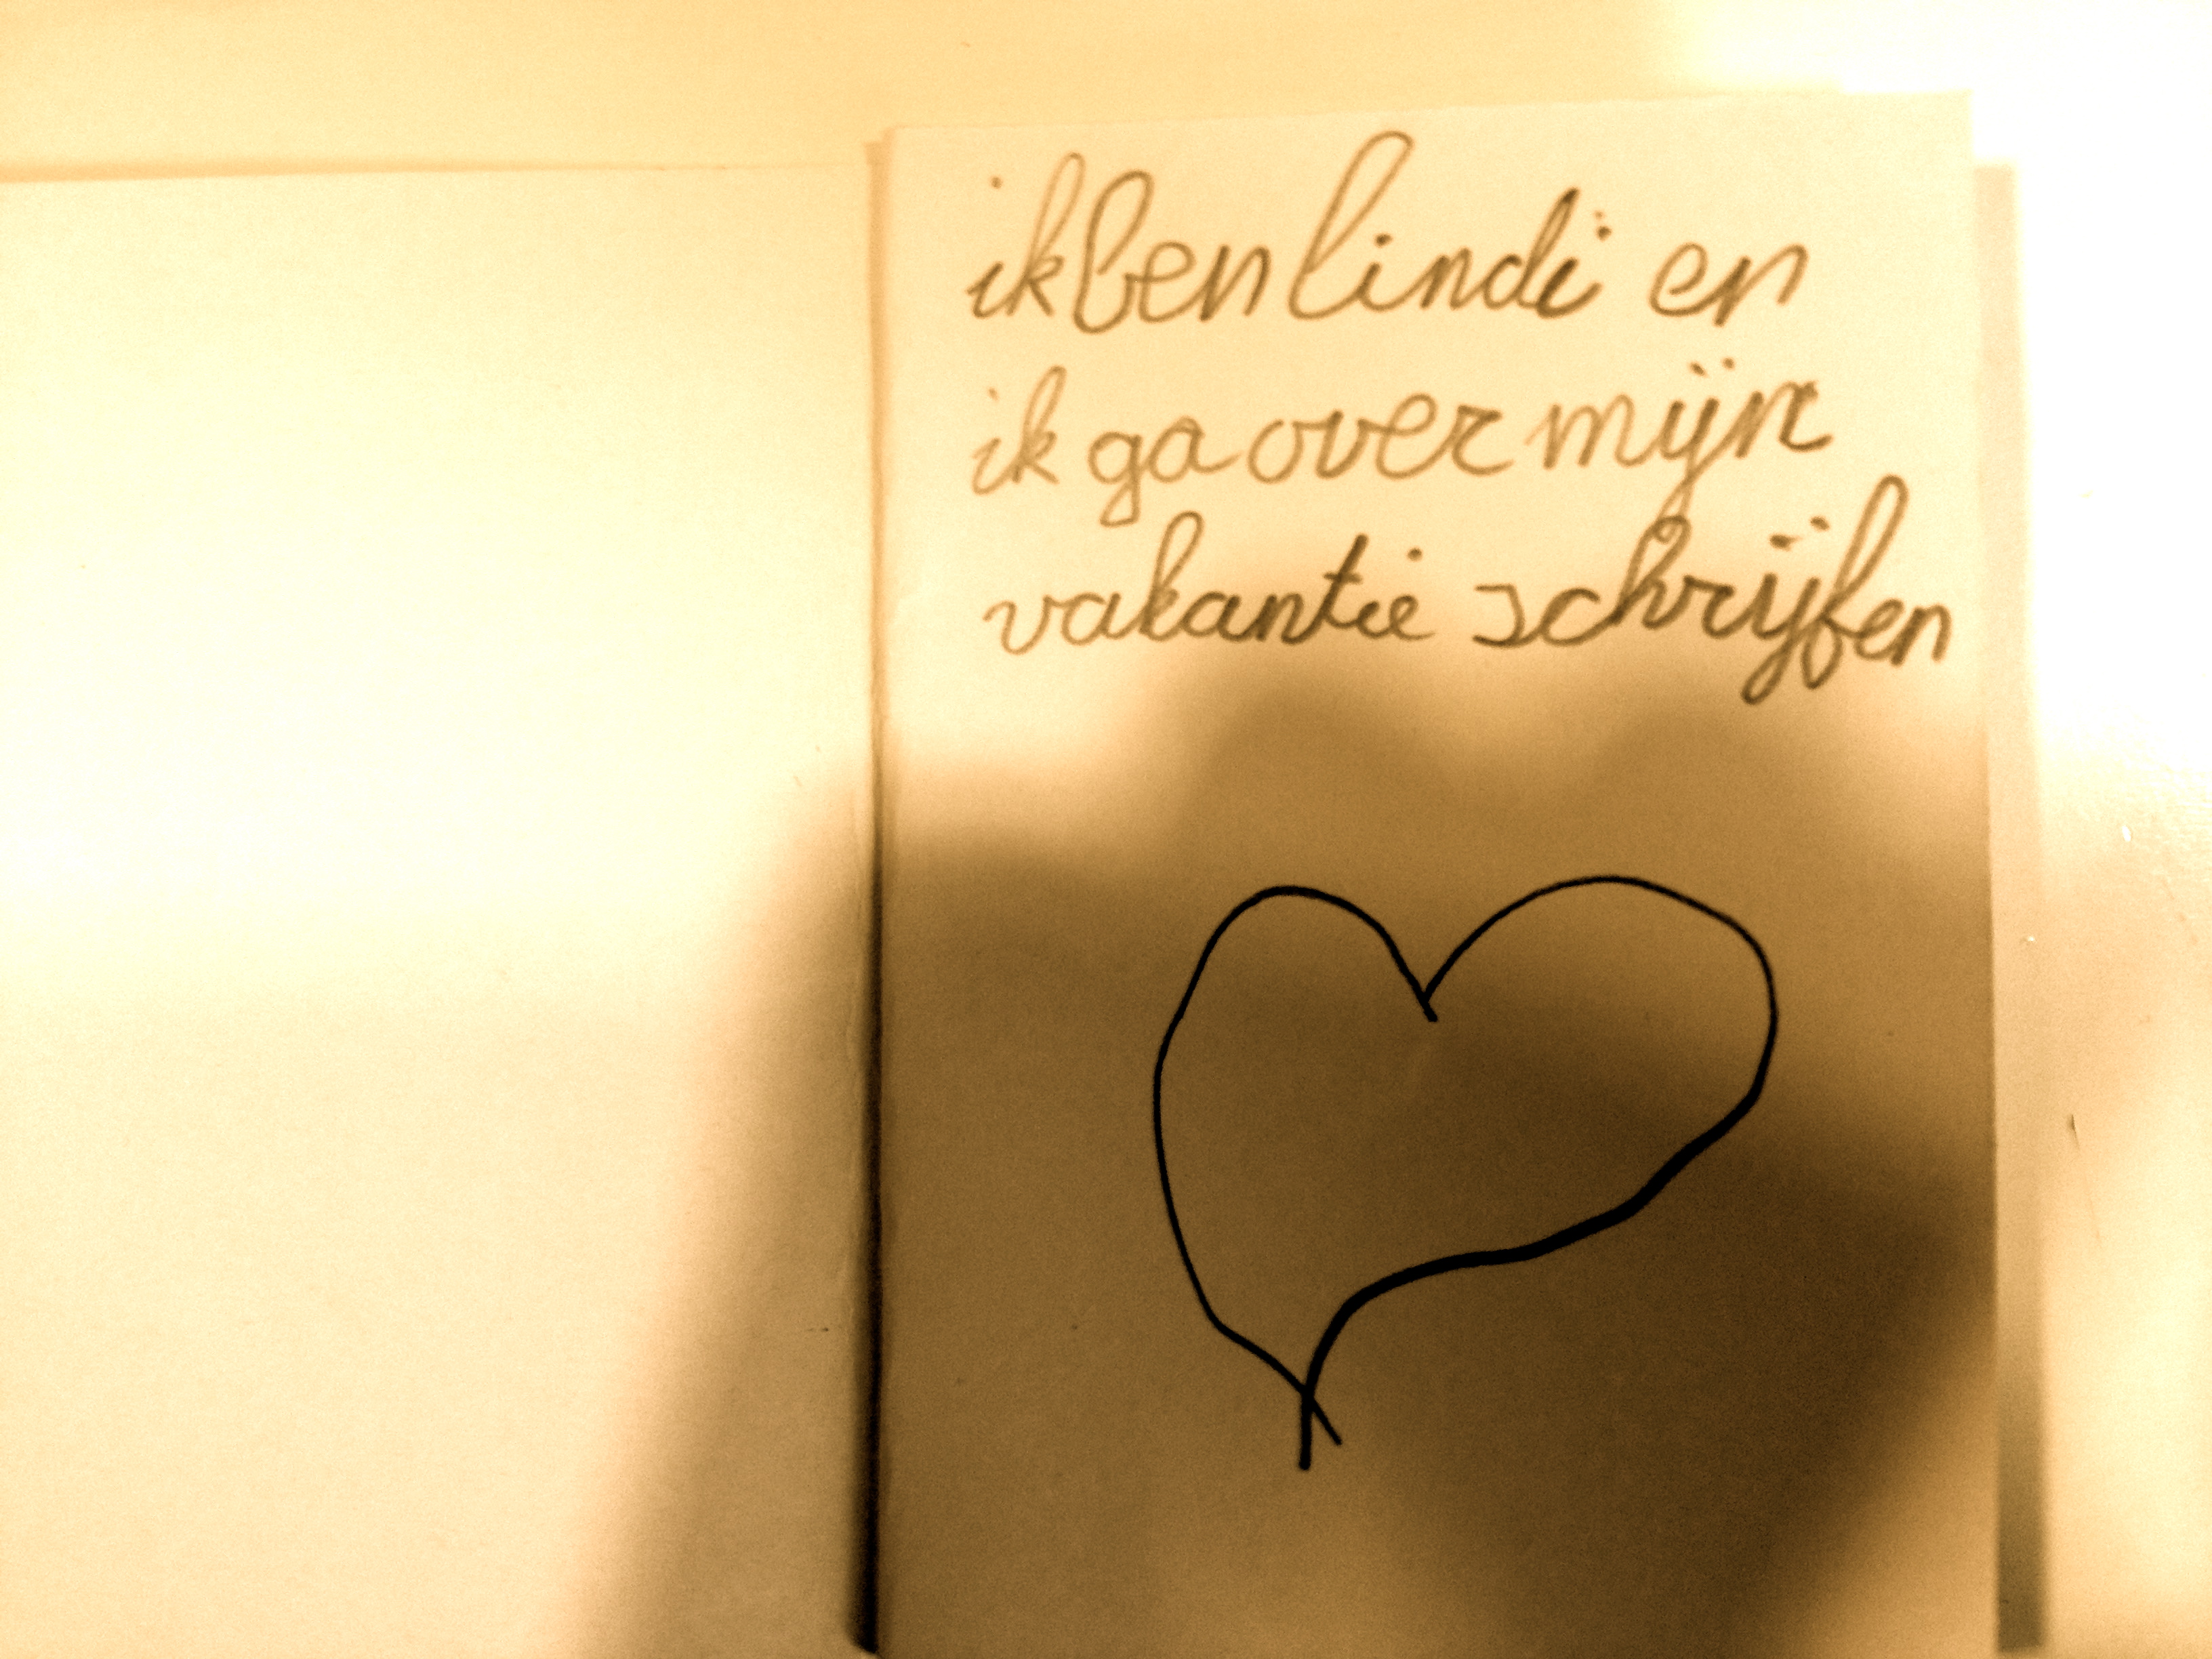 ik ben lindi en
ik ga over mijn
vakantie schrijfen